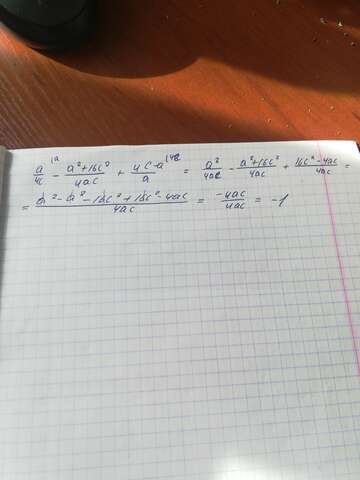 a/4c |a - a²+16c²/4ac + 4c-a/a |4c = a²/4ac - a²+16c²/4ac + 16c²-4ac/4ac =
= a²-a²-16c²+16c²-4ac/4ac = -4ac/4ac = -1